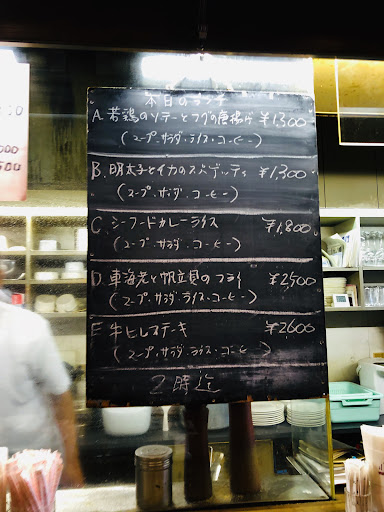 本日のランチ
A. 若鶏のソテーとフグの唐揚げ ¥1,300
(スープ・サラダ・ライス・コーヒー)
B. 明太子とイカのスパゲッティ ¥1,300
(スープ・サラダ・コーヒー)
C. シーフードカレーライス ¥1,800
(スープ・サラダ・コーヒー)
D. 車海老と帆立貝のフライ ¥2,500
(スープ・サラダ・ライス・コーヒー)
F 牛ヒレステーキ ¥2,600
(スープ・サラダ・ライス・コーヒー)
2時迄